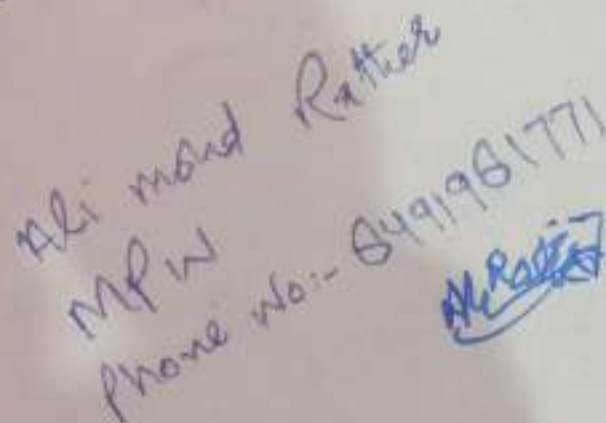 Ali mohd Rather
MPW
Phone No:- 6491961771
Ali Rather